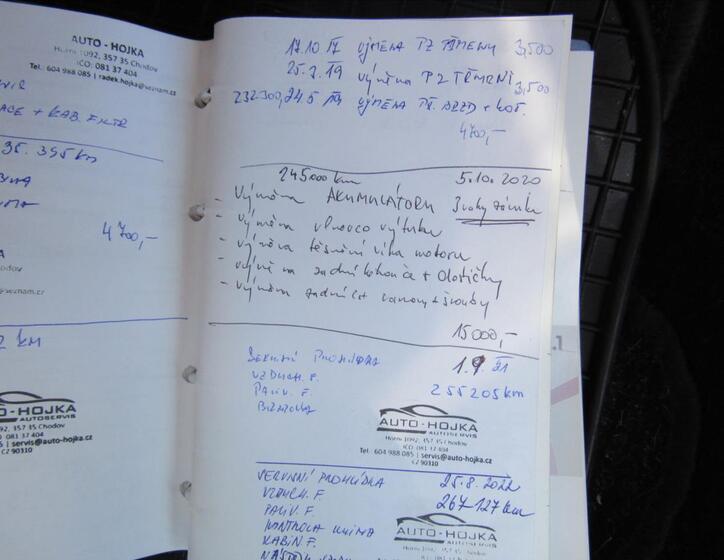 AUTO - HOJKA
Horní 1092, 357 35 Chodov
IČO: 081 37 404
Tel. 604 988 085 | radek.hojka@seznam.cz
ACE + KAB. FILTR
35. 395 km
4700,-
Chodov
@seznam.cz
2 KM
AUTO-HOJKA
AUTOSERVIS
, 357 35 Chodov
IČO 081 37 404
| servis@auto-hojka.cz
CZ 90310
17.10 17 VÝMĚNA PZ TŘMENU 3,500
25.2.19 výměna PZ TŘMENÍ 3,500
232300, 24.5 VÝMĚNA PŘ. + KOT.
4700,-
245000 km 5.10.2020
- Výměna AKUMULÁTORU 3 roky záruka
- výměna vlnovce výfuku
- výměna těsnění víka motoru
- výměna zadní kotouče + Destičky
- výměna zadní + šrouby
15000,-
SERVISNÍ PROHLÍDKA 1.9. 21
VZDUCH. F. 255205km
PALIV. F.
BRZDOVKA
AUTO-HOJKA
AUTOSERVIS
Horní 1092, 357 35 Chodov
IČO 081 37 404
Tel. 604 988 085 | servis@auto-hojka.cz
CZ 90310
SERVISNÍ PROHLÍDKA 25.8.2022
VZDUCH. F. 267127 km
PALIV. F.
KONTROLA KLIMA
KABIN F.
AUTO-HOJKA
AUTOSERVIS